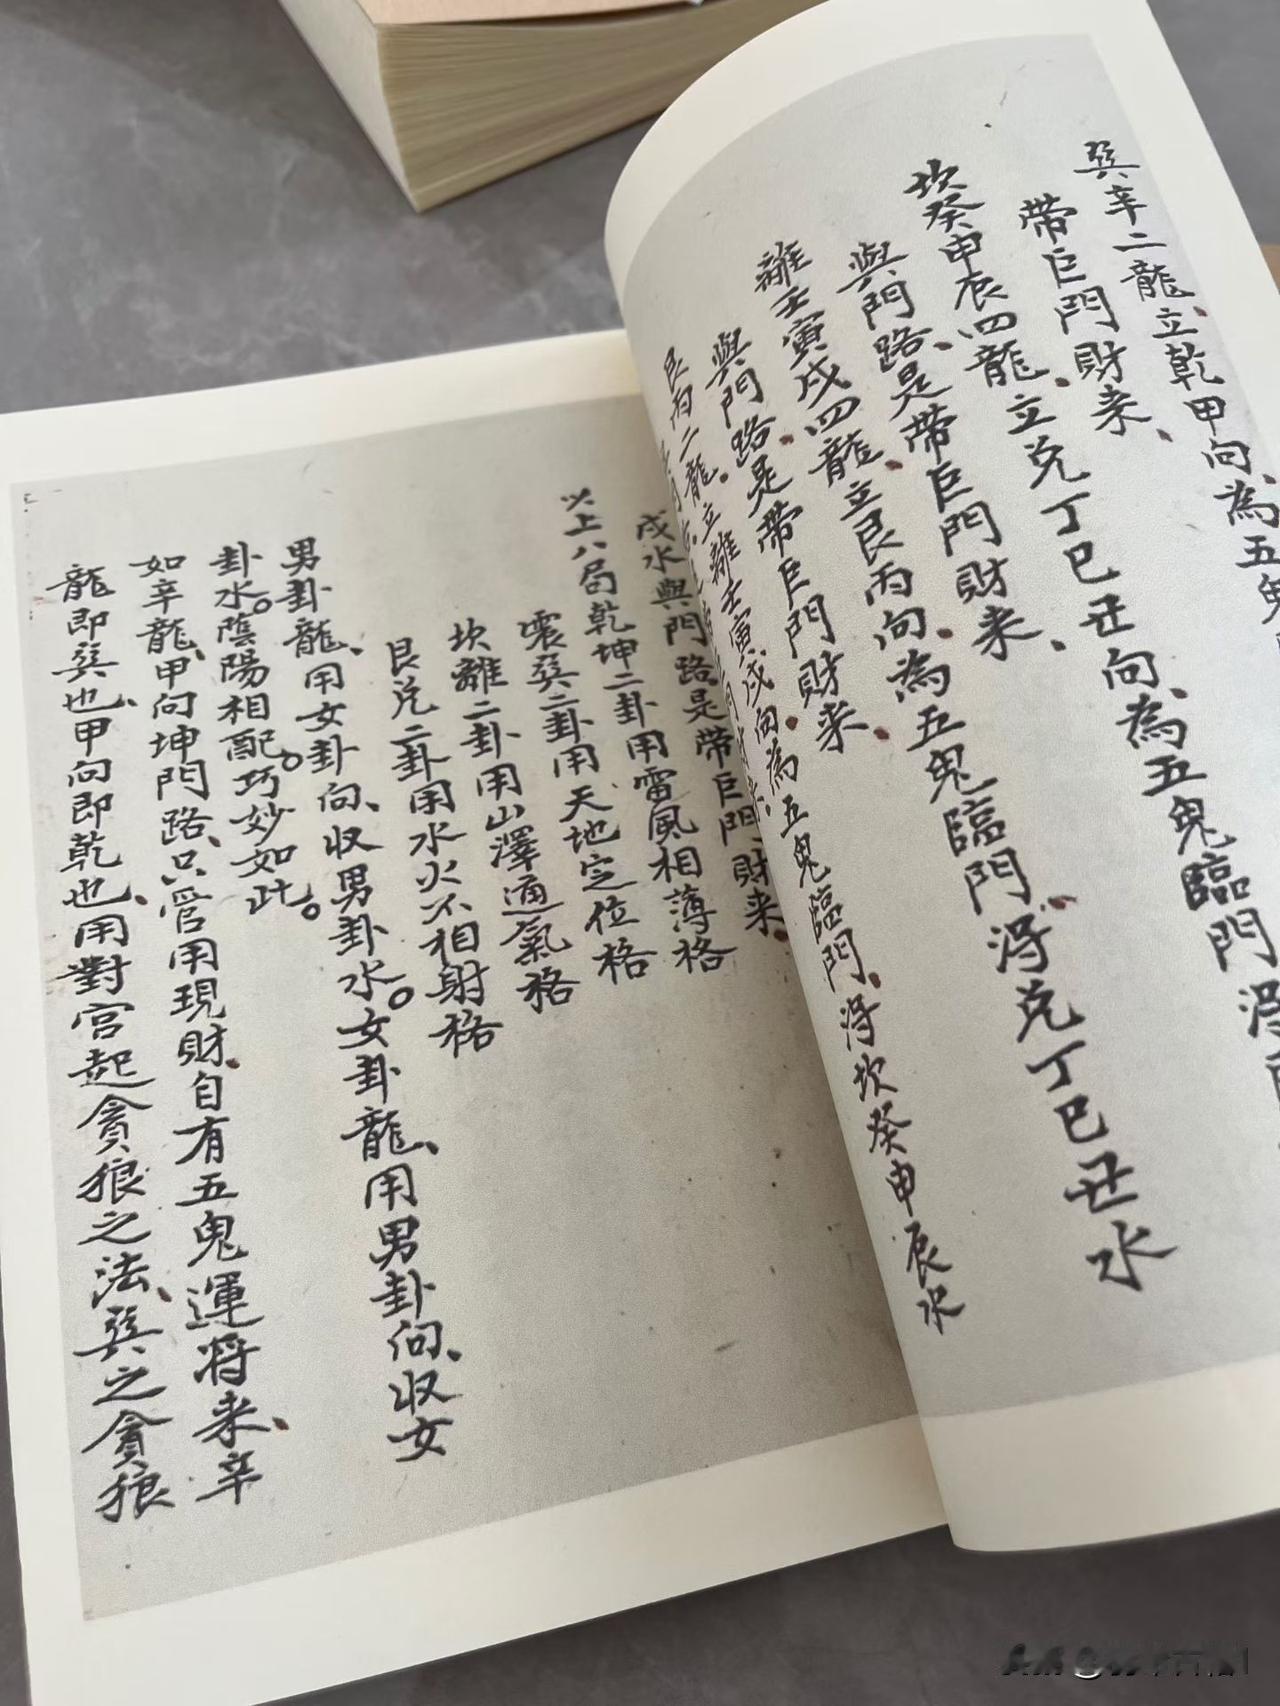 巽辛二龍、立乾甲向、為五鬼
帶巨門財来、
坎癸申辰四龍、立兊丁巳丑向、為五鬼臨門、得
與門路、是帶巨門財来、
離壬寅戌四龍、立艮丙向、為五鬼臨門、得兊丁巳丑水
與門路、是帶巨門財来、
艮丙二龍、立離壬寅戌向、為五鬼臨門、得坎癸申辰水
戌水與門路是帶巨門財来、
以上八局乾坤二卦用雷風相薄格
震巽二卦用天地定位格
坎離二卦用山澤通氣格
艮兊二卦用水火不相射格
男卦龍、用女卦向、收男卦水。女卦龍、用男卦向、收女
卦水。陰陽相配。巧妙如此。
如辛龍、甲向坤門路、只管用現財、自有五鬼運将来、辛
龍即巽也、甲向即乾也、用對宫起貪狼之法、巽之貪狼